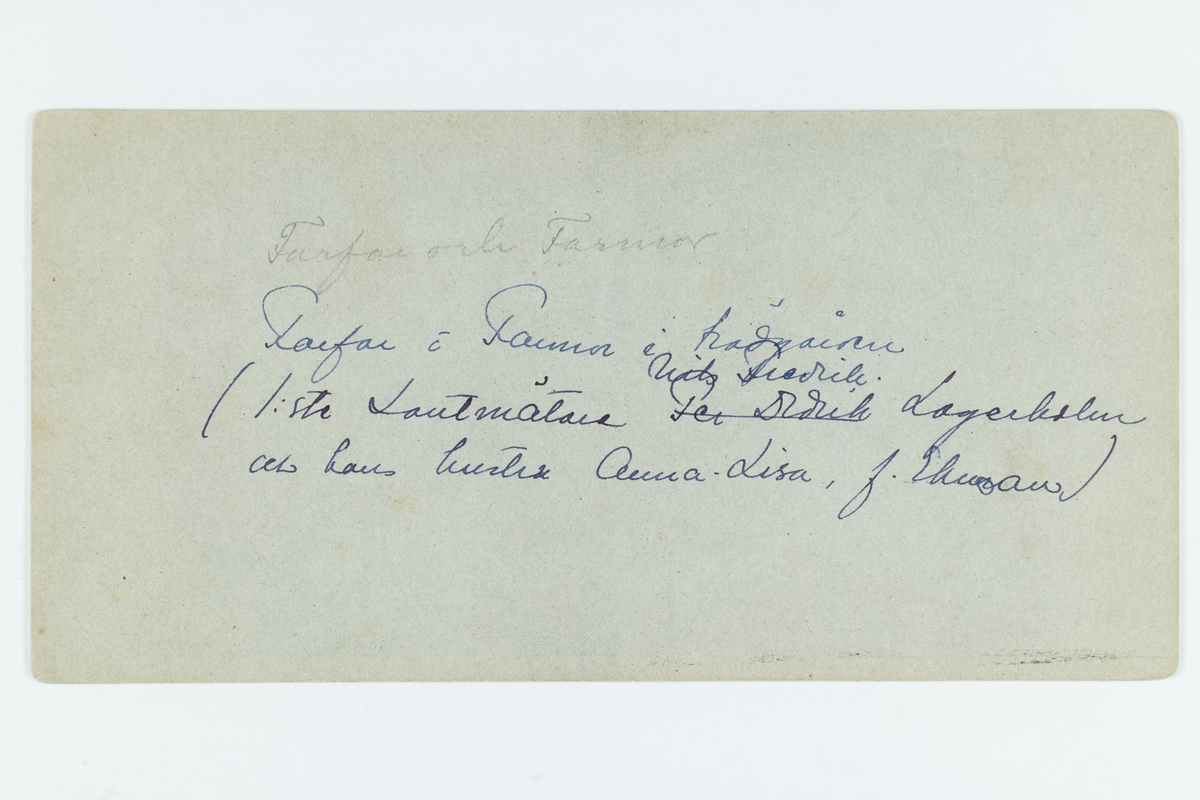 Farfar och Farmor
Farfar o Farmor i trädgården
Nils Fredrik.
(1:ste Lantmätare Per Didrik Lagerholm
och hans hustru Anna-Lisa, f. Ekman)